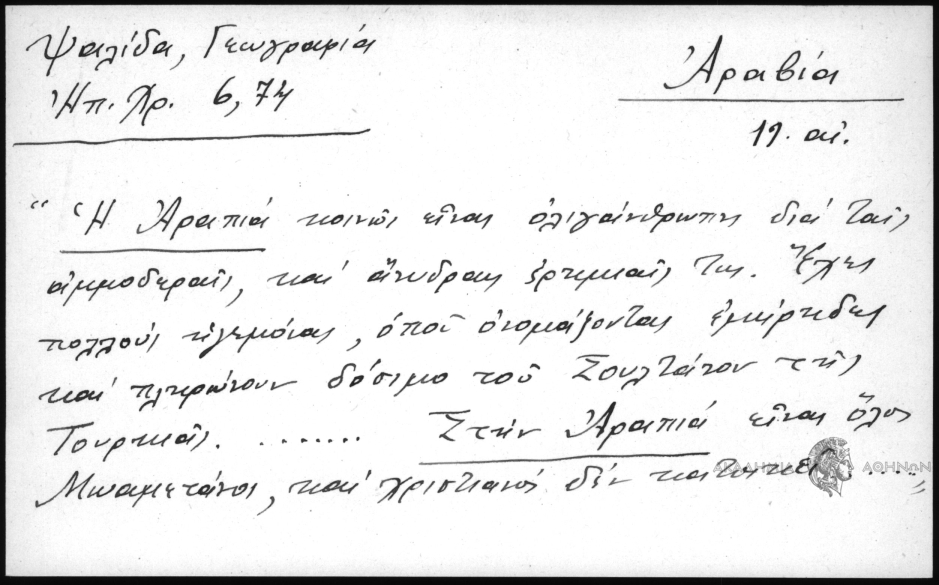 Ψαλίδα, Γεωγραφία
Ἠπ. Χρ. 6, 74
Ἀραβία
19. αἰ.
“Ἡ Ἀραπιά κοινῶς εἶναι ὀλιγάνθρωπη διά ταῖς
ἀμμοδεραῖς, καί ἄνυδραις ἐρημιαῖς της. Ἔχει
πολλούς ἡγεμόνας, ὁποῦ ὀνομάζονται ἐμίρηδες
καί πληρώνουν δόσιμο τοῦ Σουλτάνου τῆς
Τουρκιᾶς. ........ Στήν Ἀραπιά εἶναι ὅλοι
Μωαμετάνοι, καί χριστιανοί δέν κατοικεῖ ..."
ΑΚΑΔΗΜΙΑ ΑΘΗΝΩΝ